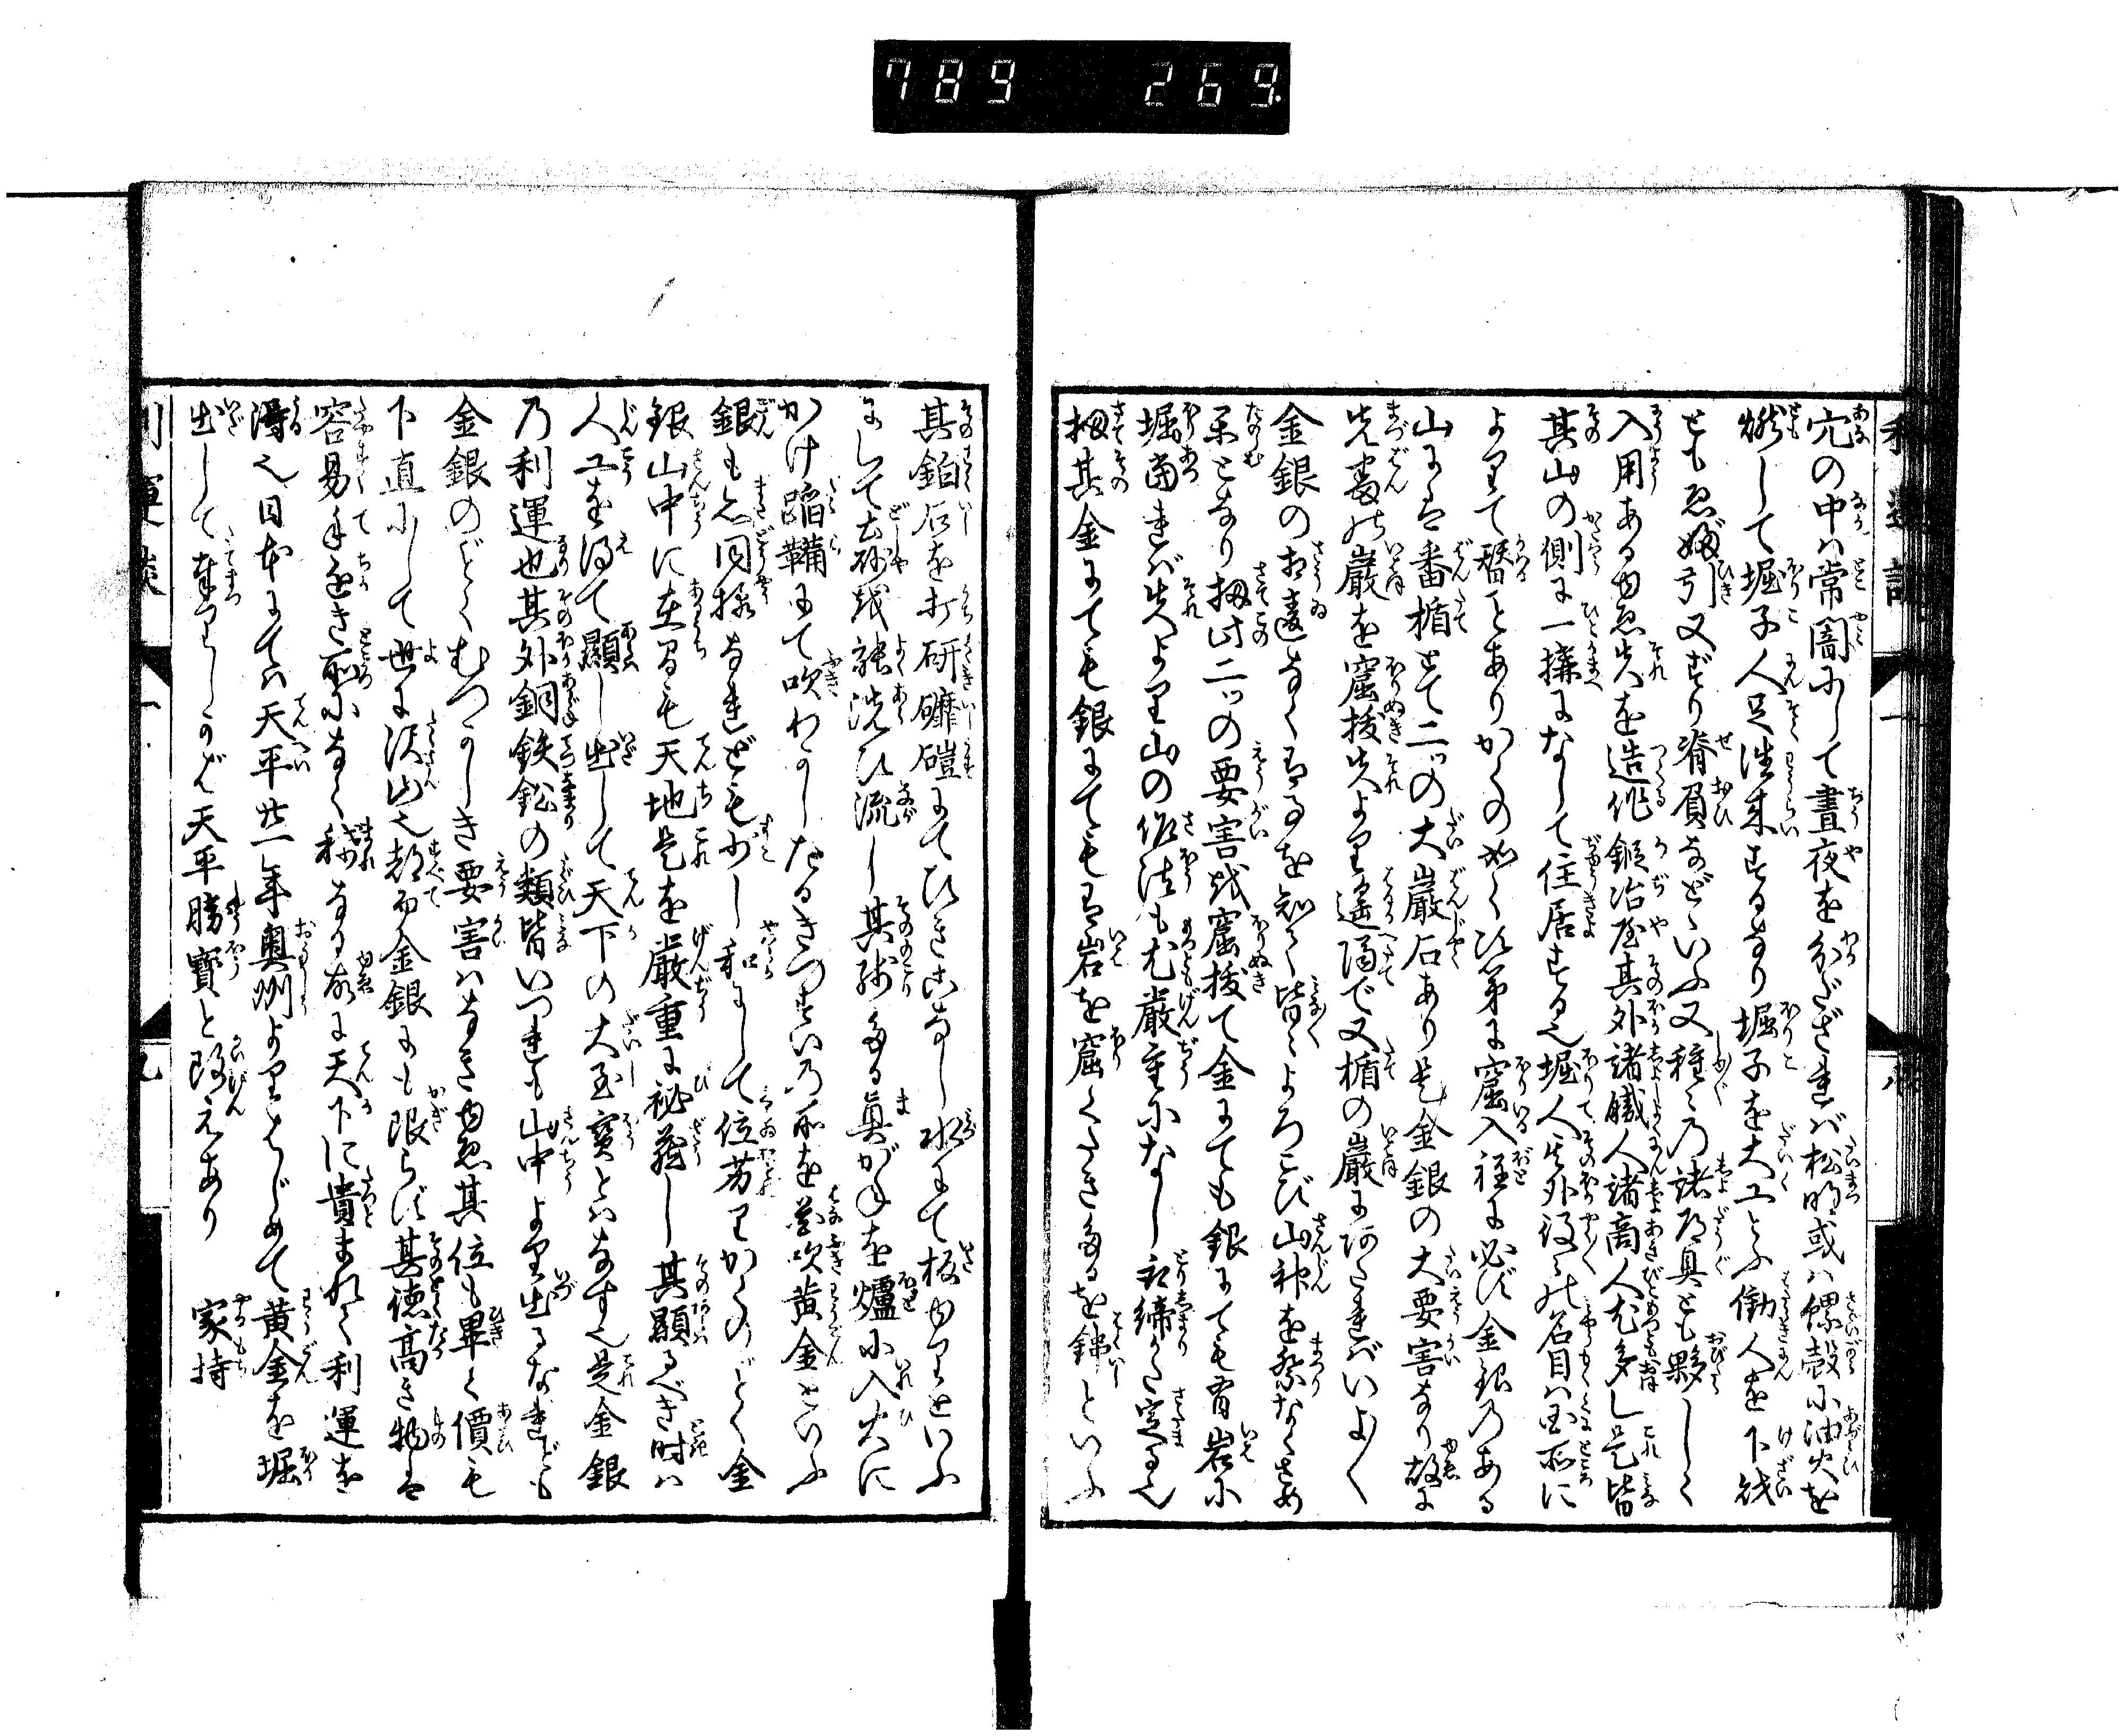 789 269.
穴の中ハ常闇にして晝夜を分ざれバ松明或ハ螺殻に油火を
燃して堀子人足往来するなり堀子を大工とふ働人を下財
ともゑぶ引又ずり脊負などゝいふ又種々乃諸道具とも夥しく
入用ある由ゑ夫を造作鍛冶屋其外諸職人諸商人尤多し是皆
其山の側に一構になして住居する也堀人其外役々の名目ハ国所に
よりて替ことありかくの如く次第に窟入程に必ず金銀乃ある
山にハ番楯とて二ッの大巌石あり是金銀の大要害なり故に
先番の巌を窟抜夫より遥隔て又楯の巌に あたれバいよ〱
金銀の相違なくあるを知て皆々よろこび山神を祭なぐさめ
楽となり扨此二ッの要害を窟抜て金にても銀にても有岩に
堀當れバ夫より山の作法も尤厳重になし取締を定る也
扨其金にても銀にてもある岩を窟くだき多るを鉑といふ
其鉑石を打研礦磑にてひきこなし水にて板由りといふ
にして土砂を能洗ひ流し其残多る真がねを爐に入火に
かけ蹈鞴にて吹わかしたるきつすい乃所を花吹黄金といふ
銀も亦同様なれども少し和にして位劣りかくのごとく金
銀山中に在ても天地是を厳重に秘蔵し其顯るべき時ハ
人工を得て顯し出して天下の大至寳とハなす也是金銀
乃利運也其外銅鉄鉛の類皆いつれも山中より出るなれども
金銀のごとくむつかしき要害ハなき由ゑ其位も畢く價も
下直にして世に沢山也都而金銀にも限らず其徳高き物ハ
容易手近き所になく稀なる故に天下に貴まれて利運を
得也日本にてハ天平廿一年奥州よりはじめて黄金を堀
出して奉りしかば天平勝寳と改元あり 家持
利運談